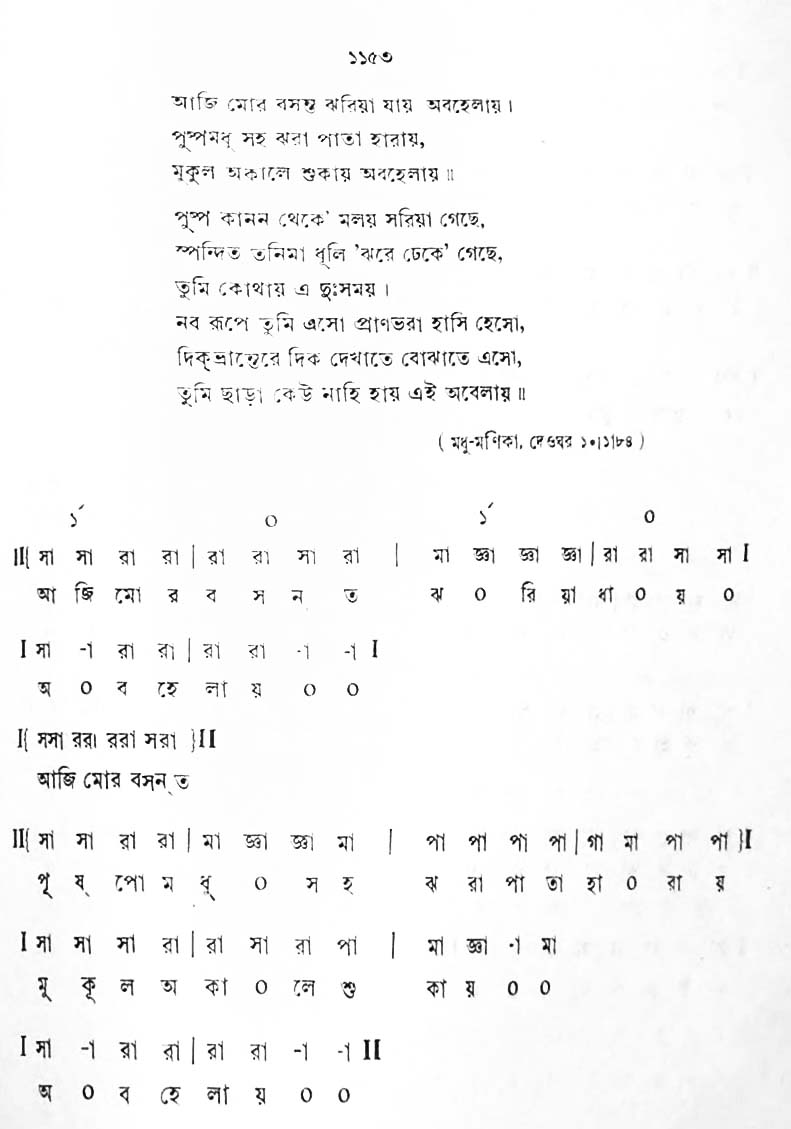 ১১৫৩
আজি মোর বসন্ত ঝরিয়া যায় অবহেলায়।
পুষ্পমধু সহ ঝরা পাতা হারায়,
মুকুল অকালে শুকায় অবহেলায়॥
পুষ্প কানন থেকে' মলয় সরিয়া গেছে,
স্পন্দিত তনিমা ধূলি 'ঝরে ঢেকে' গেছে,
তুমি কোথায় এ দুঃসময়।
নব রূপে তুমি এসো প্রাণভরা হাসি হেসো,
দিক্‌ভ্রান্তেরে দিক দেখাতে বোঝাতে এসো,
তুমি ছাড়া কেউ নাহি হায় এই অবেলায়॥
( মধু-মণিকা, দেওঘর ১০।১।৮৪ )
১´ ০ ১´ ০
II{ সা সা রা রা | রা রা সা রা | মা জ্ঞা জ্ঞা জ্ঞা | রা রা সা সা I
আ জি মো র ব স ন ত ঝ ০ রি য়া ধা ০ য় ০
I সা -া রা রা | রা রা -া -া I
অ ০ ব হে লা য় ০ ০
I{ সসা ররা ররা সরা }II
আজি মোর বসন্ ত
II{ সা সা রা রা | মা জ্ঞা জ্ঞা মা | পা পা পা পা | গা মা পা পা }I
পু ষ্ পো ম ধু ০ স হ ঝ রা পা তা হা ০ রা য়
I সা সা সা রা | রা সা রা পা | মা জ্ঞা -া মা
মু কূ ল অ কা ০ লে শু কা য় ০ ০
I সা -া রা রা | রা রা -া -া II
অ ০ ব হে লা য় ০ ০